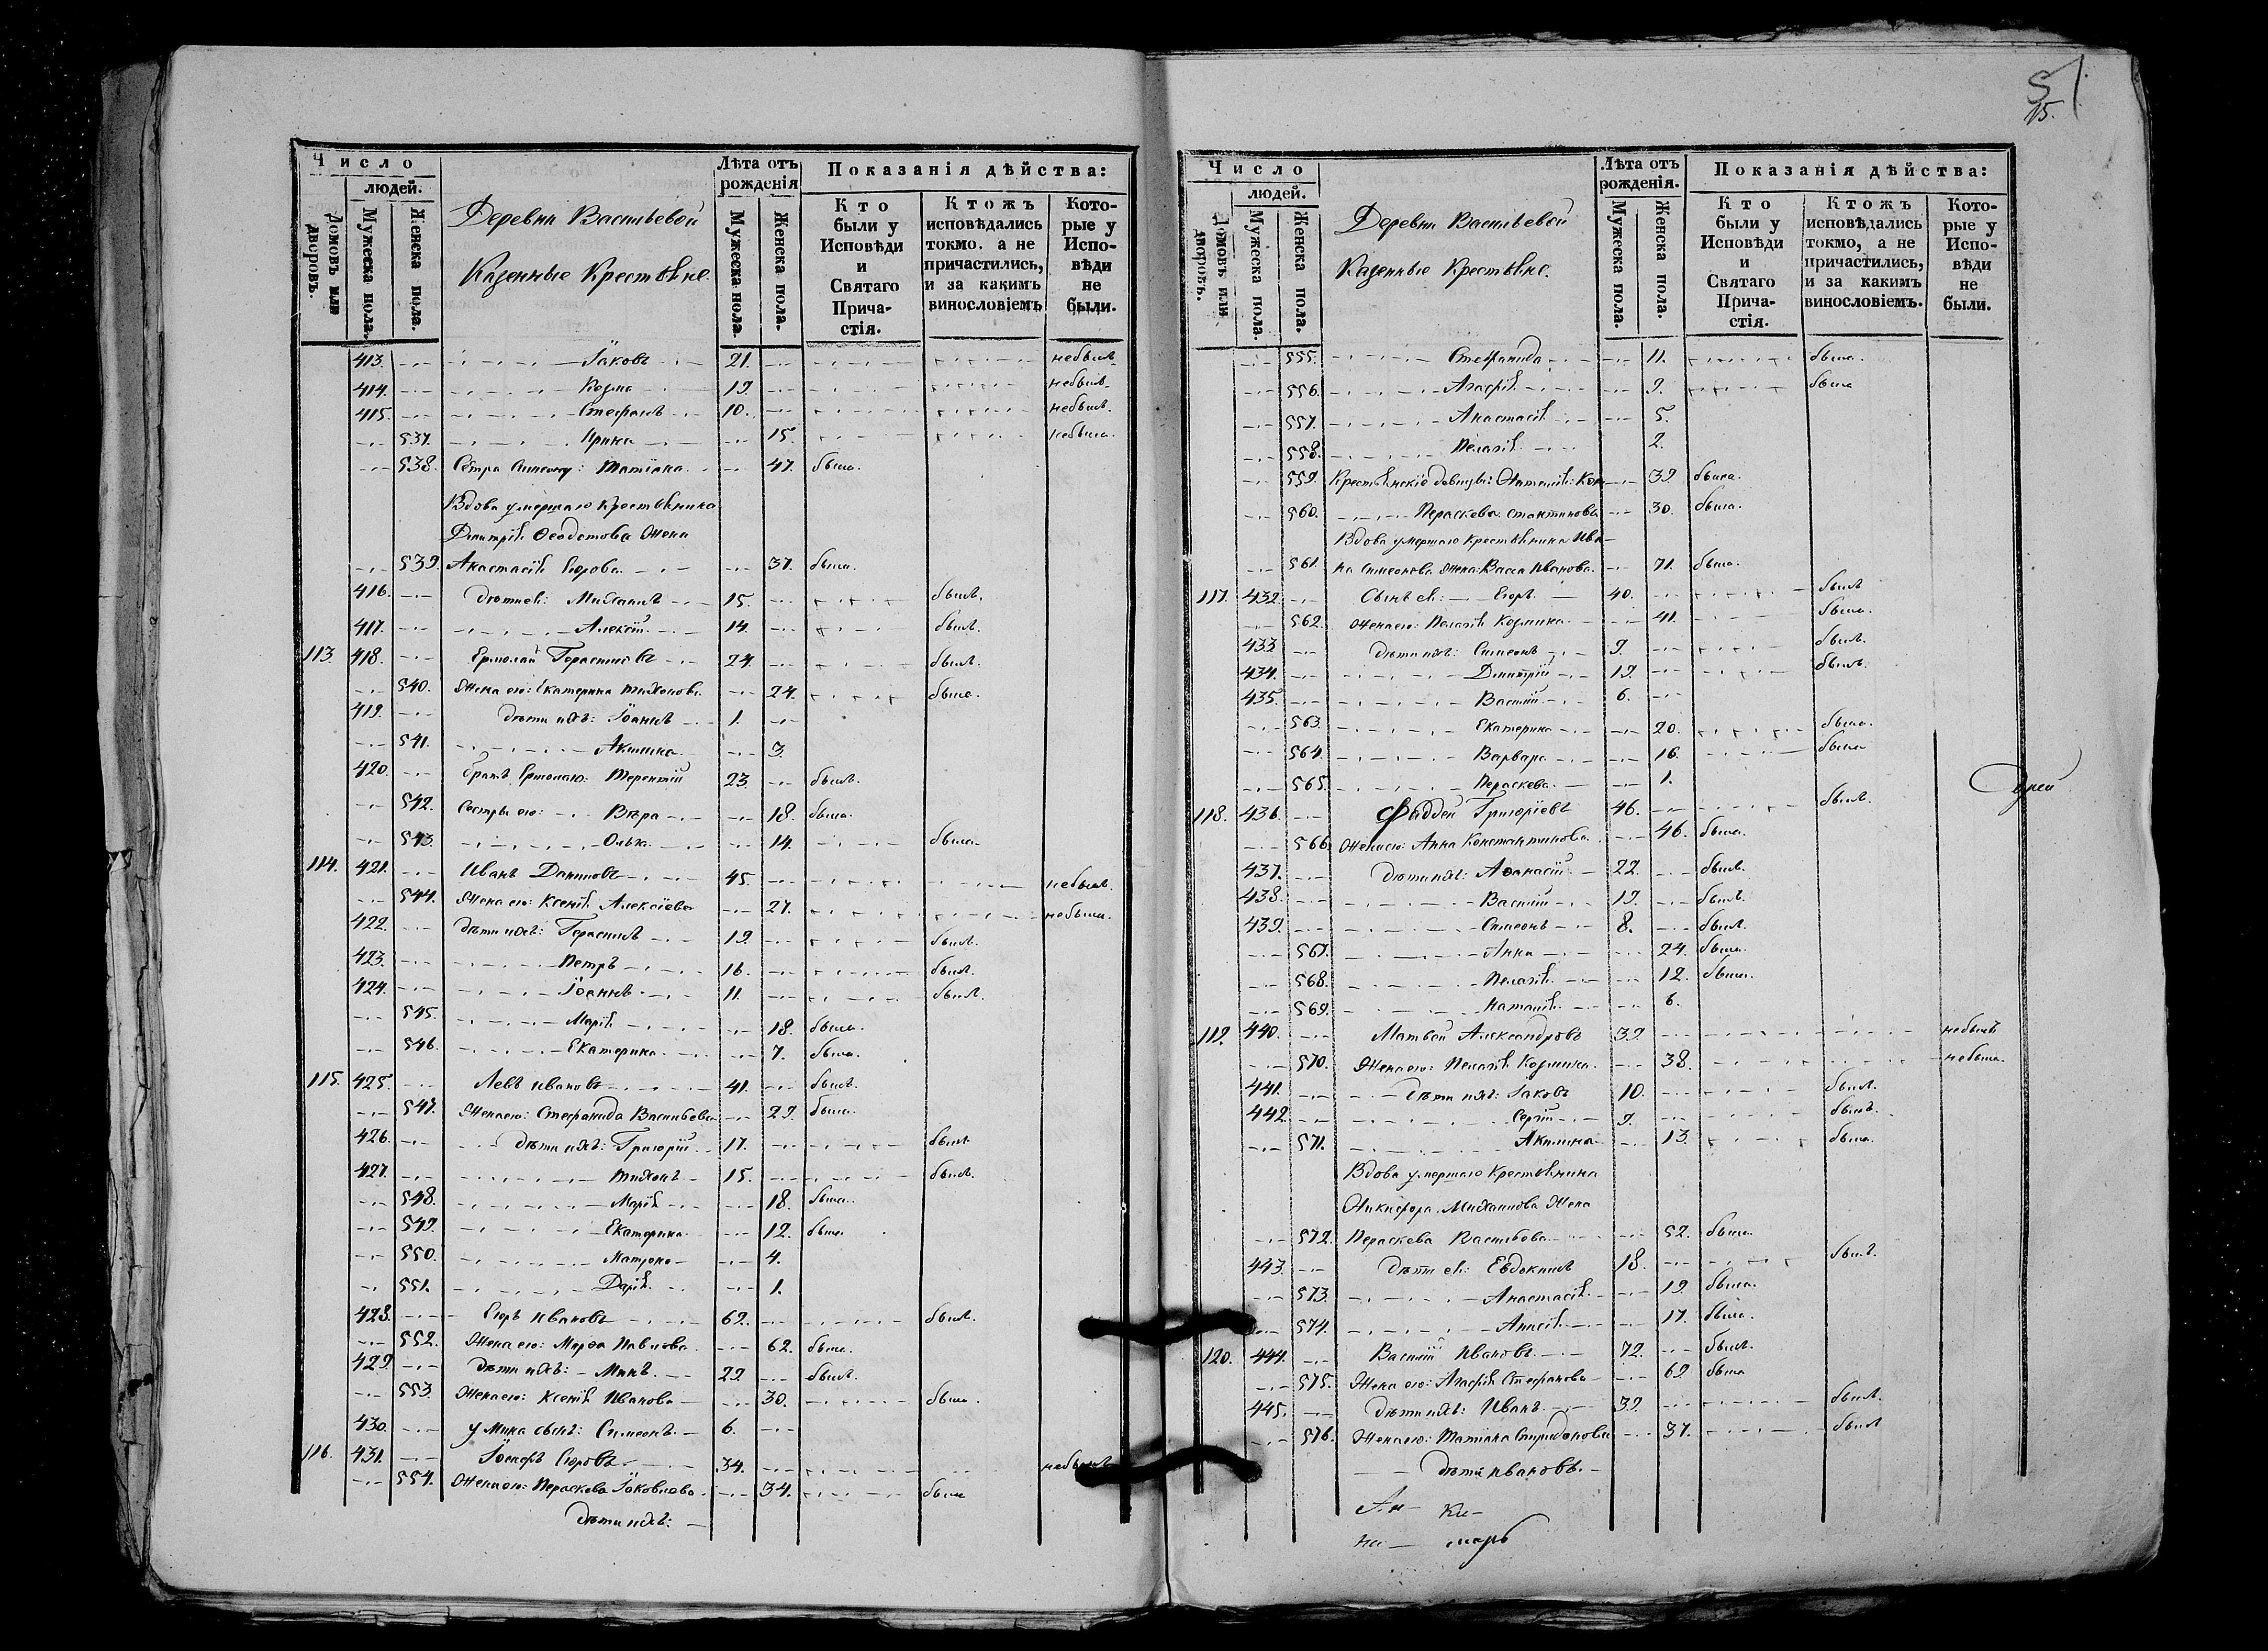 Число
людей.
Домовъ или дворовъ.
Мужеска пола.
Женска пола.
Деревни Васильевой
Казенные Крестьяне.
Лѣта отъ рожденія
Мужеска пола.
Женска пола.
Показанія дѣйства:
Кто были у Исповѣди и Святаго Прича-стія.
Ктожъ исповѣдались токмо. а не причастились, и за какимъ винословіемъ
Кото-рые у Испо-вѣди не были.
413. Іаковъ 21. небылъ
414. Козма 19. небылъ
415. Стефанъ 10. небылъ.
537. Ирина 15. небыла.
538. Сестра Симеону: Татіана 47. была.
Вдова умершаго Крестьянина
Димитрія Ѳеодотова Жена
539. Анастасія Егорова 37. была.
416. Дѣти ея: Михаилъ 15. былъ.
417. Алексій 14. былъ.
113. 418. Ермолай Герасимовъ 24. былъ.
540. Жена его: Екатерина Тихонова 24. была.
419. Дѣти ихъ: Іоаннъ 1.
541. Акилина 3.
420. братъ Ермолаю: Терентій 23. былъ.
542. Сестры его: Вѣра 18. была.
543. Ольга 14. была.
114. 421. Иванъ Даниловъ 45. небылъ.
544. Жена его: Ксенія Алексіева 27. небыла.
422. Дѣти ихъ: Герасимъ 19. былъ.
423. Петръ 16. былъ.
424. Іоаннъ 11. былъ.
545. Марія 18. была.
546. Екатерина 7. была.
115. 425. Левъ Ивановъ 41. былъ.
547. Жена его: Стефанида Васильева 29. была.
426. Дѣти ихъ: Григорій 17. былъ
427. Тихонъ 15. былъ.
548. Марія 18. была.
549. Екатерина 12. была
550. Матрона 4.
551. Дарія 1.
428. Егоръ Ивановъ 62. былъ.
552. Жена его: Марѳа Павлова 62. была.
429. Дѣти ихъ: Минъ 29. былъ.
553. Жена его: Ксенія Иванова 30. была.
430. у Мина сынъ: Симеонъ 6.
116. 431. Іосифъ Егоровъ 34. небылъ
554. Жена его: Параскева Іаковлева 34. была
Дѣти ихъ:
51.
15.
Число
людей.
Домовъ или дворовъ.
Мужеска пола.
Женска пола.
Деревни Васильевой
Казенные Крестьяне.
Лѣта отъ рожденія.
Мужеска пола.
Женска пола.
Показанія дѣйства:
Кто были у Исповѣди и Святаго Прича-стія.
Ктожъ исповѣдались токмо, а не причастились, и за какимъ винословіемъ.
Кото-рые у Испо-вѣди не были.
555. Стефанида 11. была.
556. Агафія 9. была
557. Анастасія 5.
558. Пелагія 2.
559. Крестьянскіе девицы: Наталія: Кон 39 была.
560. Параскева стантиновы 30. была.
Вдова умершаго Крестьянина Ива—
561. на Симеонова Жена: Васса Иванова. 71. была.
117. 432. Сынъ ея: Егоръ 40. былъ
562. Жена его: Пелагія Козмина 41. была.
433 Дѣти ихъ: Симеонъ 9. былъ.
434. Димитрій 19. былъ.
435. Василій 6.
563. Екатерина 20. была.
564. Варвара 16. была
565. Параскева 1.
118. 436. Фаддей Григоріевъ 46. былъ.
566. Жена его: Анна Константинова 46. была.
437. Дѣти ихъ: Аѳанасій 22. былъ.
438. Василій 19. былъ.
439. Симеонъ 8. былъ.
567. Анна 24. была.
568. Пелагія 12. была.
569. Наталія 6.
119. 440. Матвей Александровъ 39. небылъ
570. Жена его: Пелагія Козмина 38. небыла.
441. Дѣти ихъ: Іаковъ 10. былъ.
442 Сергій 9. былъ.
571. Акилина 13. была.
Вдова умершаго Крестьянина
Никифора Михаилова Жена
572. Параскева Васильева 52. была.
443. Дѣти ея: Евдокимъ 18. былъ.
573. Анастасія 19. была.
574. Анисія 17. была.
120. 444. Василій Ивановъ 72. былъ.
575. Жена его: Агафія Стефанова 62 была
445. Дѣти ихъ: Иванъ 39. былъ.
576. Жена его: Татіана Спиридонова 37. была
Дѣти Ивановы
Ки—